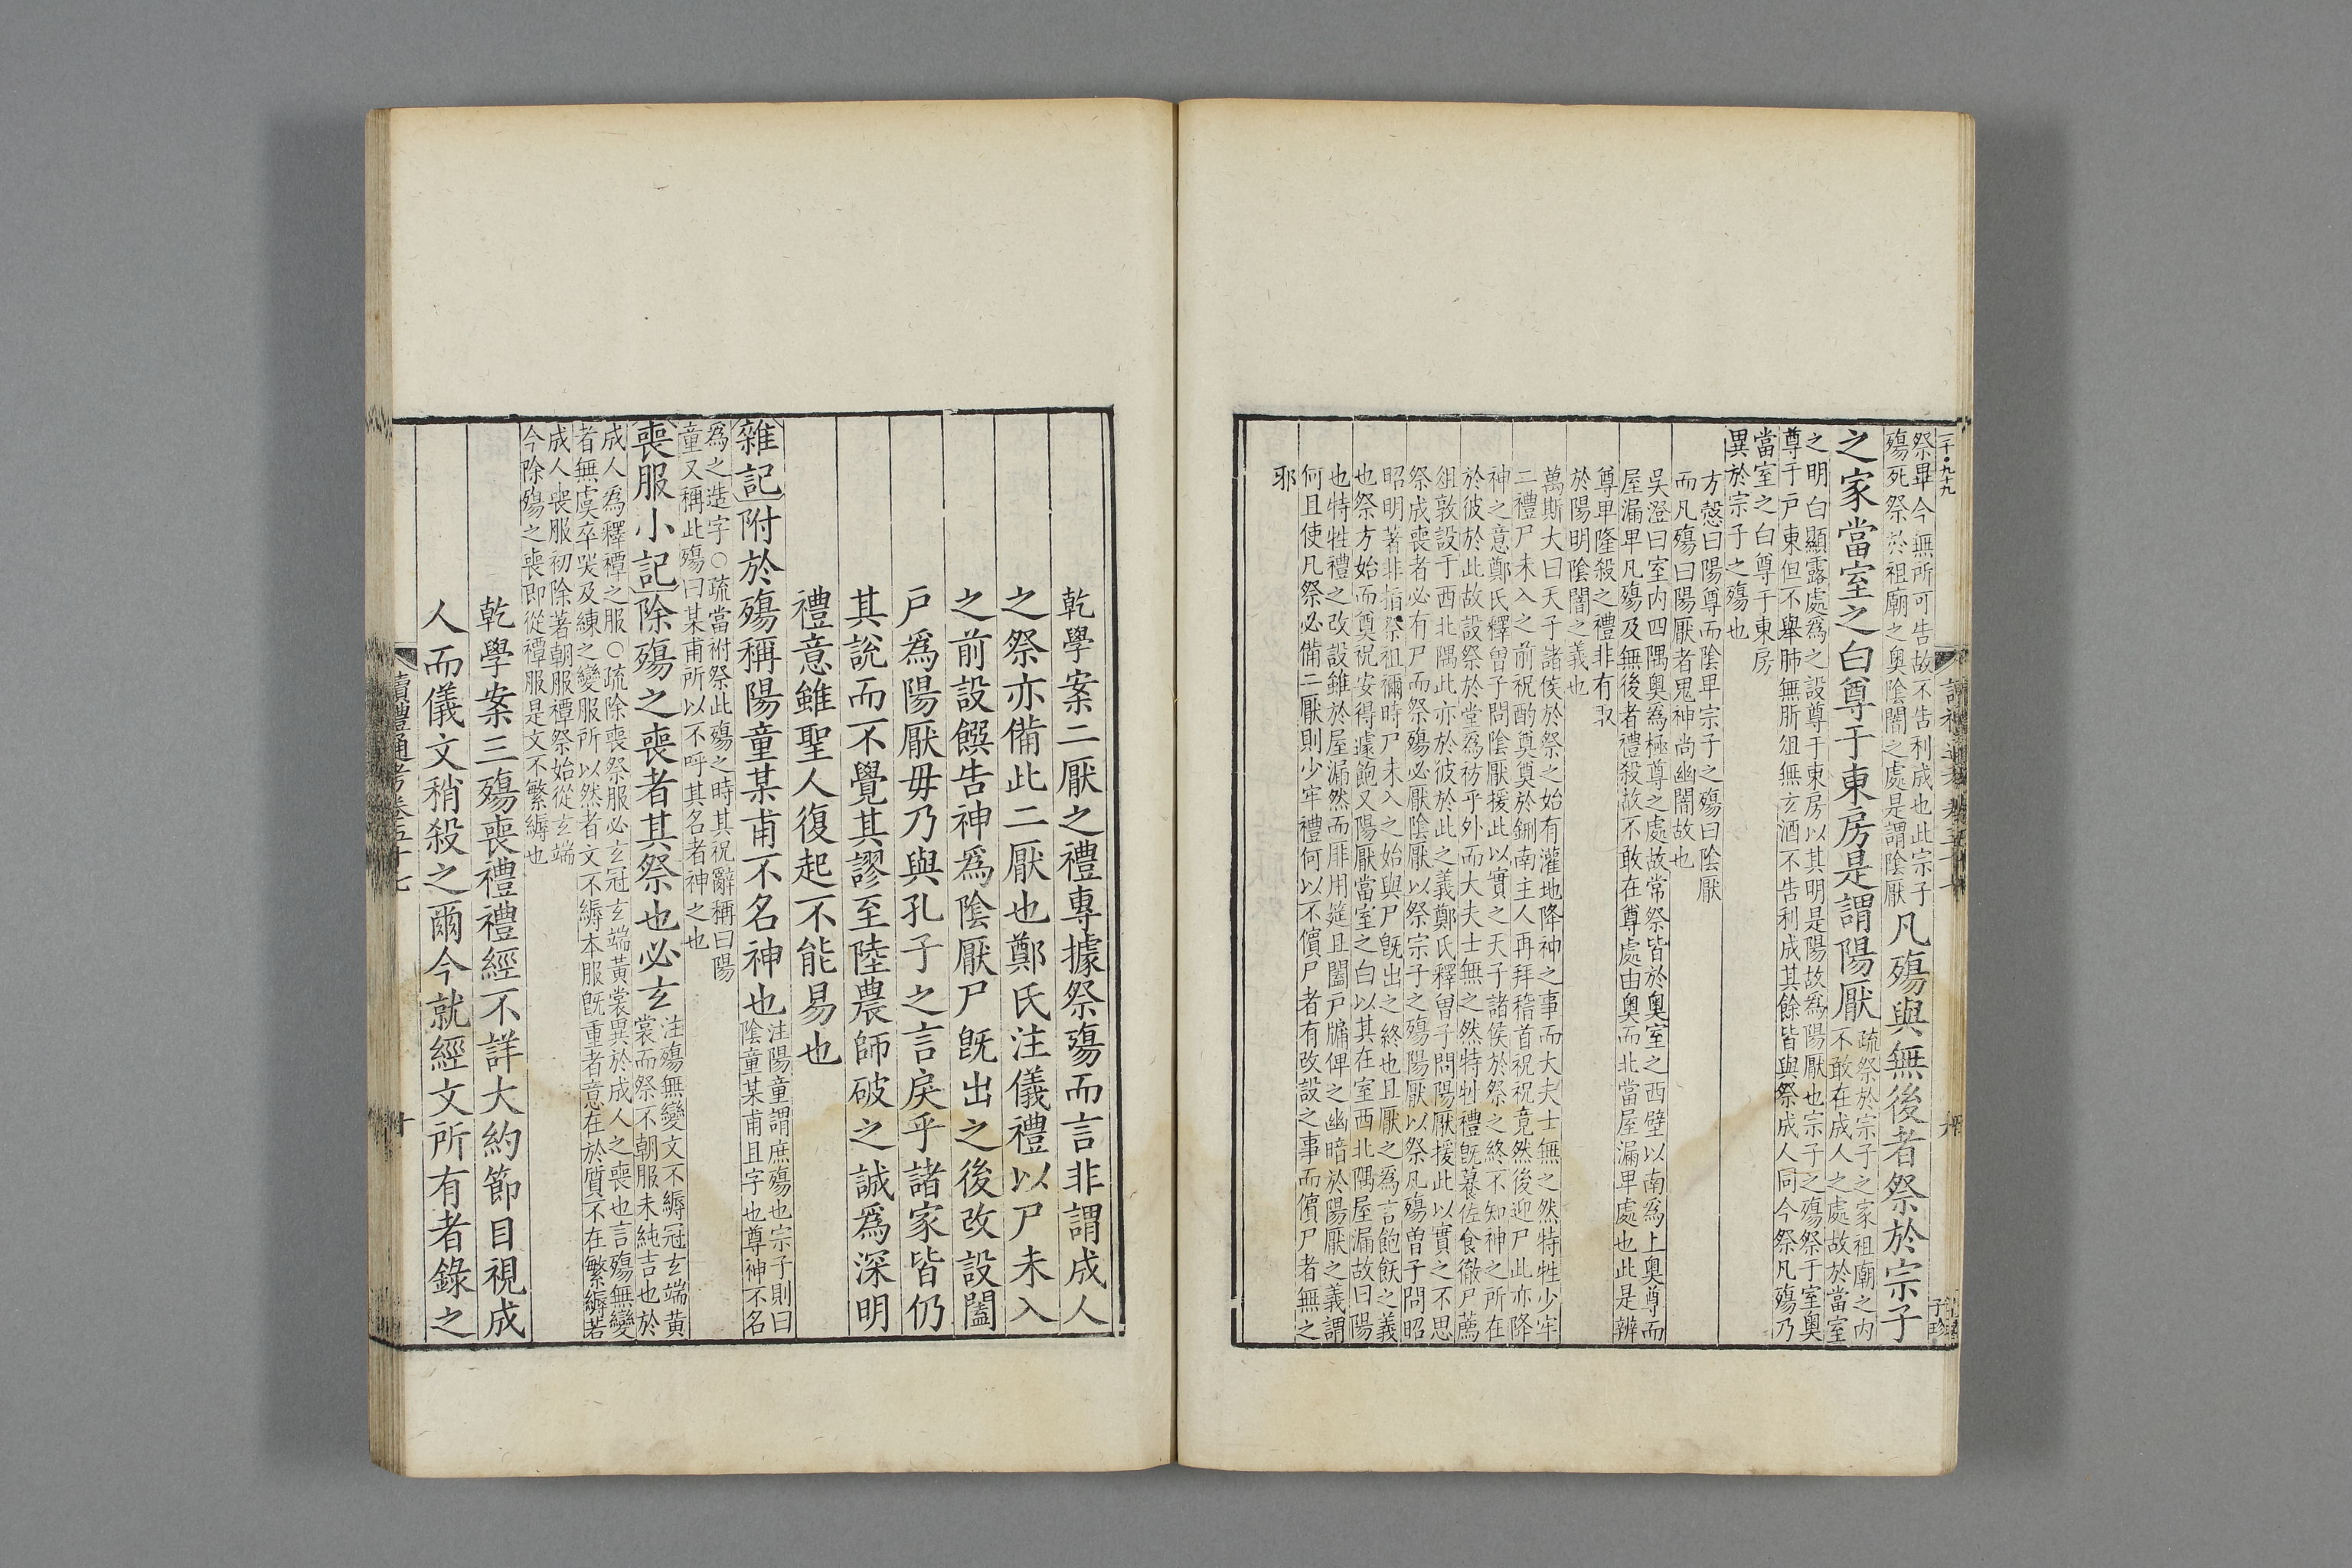 祭畢今無所可告故不告利成也此宗子
殤死祭於祖廟之奥陰闇之處是謂陰厭
凡殤與無後者祭於宗子
之家當室之白尊于東房是謂陽厭
疏祭於宗子之家祖廟之内
不敢在成人之處故於當室
之明白顯露處爲之設尊于東房以其明是陽故爲陽厭也宗子之殤祭于室奥
尊于戸東但不舉肺無肵俎無玄酒不告利成其餘皆與祭成人同今祭凡殤乃
當室之白尊于東房
異於宗子之殤也
方慤曰陽尊而陰卑宗子之殤曰陰厭
而凡殤曰陽厭者鬼神尚幽闇故也
吳澄曰室内四隅奥爲極尊之處故常祭皆於奥室之西壁以南爲上奥尊而
屋漏卑凡殤及無後者禮殺故不敢在尊處由奥而北當屋漏卑處也此是辨
尊卑隆殺之禮非有取
於陽明陰闇之義也
萬斯大曰天子諸侯於祭之始有灌地降神之事而大夫士無之然特牲少牢
二禮尸未入之前祝酌奠奠於鉶南主人再拜稽首祝祝竟然後迎尸此亦降
神之意鄭氏釋曾子問陰厭援此以實之天子諸侯於祭之終不知神之所在
於彼於此故設祭於堂爲祊乎外而大夫士無之然特牲禮旣養佐食徹尸薦
俎敦設于西北隅此亦於彼於此之義鄭氏釋曾子問陽厭援此以實之不思
祭成喪者必有尸而祭殤必厭陰厭以祭宗子之殤陽厭以祭凡殤曾子問昭
昭明著非指祭祖禰時尸未入之始與尸旣出之終也且厭之爲言飽飫之義
也祭方始而奠祝安得遽飽又陽厭當室之白以其在室西北隅屋漏故曰陽
也特牲禮之改設雖於屋漏然而厞用筵且闔戸牖俾之幽暗於陽厭之義謂
何且使凡祭必備二厭則少牢禮何以不儐尸者有改設之事而儐尸者無之
耶
乾學案二厭之禮專據祭殤而言非謂成人
之祭亦備此二厭也鄭氏注儀禮以尸未入
之前設饌告神爲陰厭尸旣出之後改設闔
戸爲陽厭毋乃與孔子之言戾乎諸家皆仍
其說而不覺其謬至陸農師破之誠爲深明
禮意雖聖人復起不能易也
雜記附於殤稱陽童某甫不名神也
注陽童謂庶殤也宗子則曰
陰童某甫且字也尊神不名
爲之造字○疏當祔祭此殤之時其祝辭稱曰陽
童又稱此殤曰某甫所以不呼其名者神之也
喪服小記除殤之喪者其祭也必玄
注殤無變文不縟冠玄端黃
裳而祭不朝服未純吉也於
成人爲釋禫之服○疏除喪祭服必玄冠玄端黃裳異於成人之喪也言殤無變
者無虞卒哭及練之變服所以然者文不縟本服旣重者意在於質不在繁縟若
成人喪服初除著朝服禫祭始從玄端
今除殤之喪即從禫服是文不繁縟也
乾學案三殤喪禮禮經不詳大約節目視成
人而儀文稍殺之爾今就經文所有者錄之
讀禮通考卷五十七
十